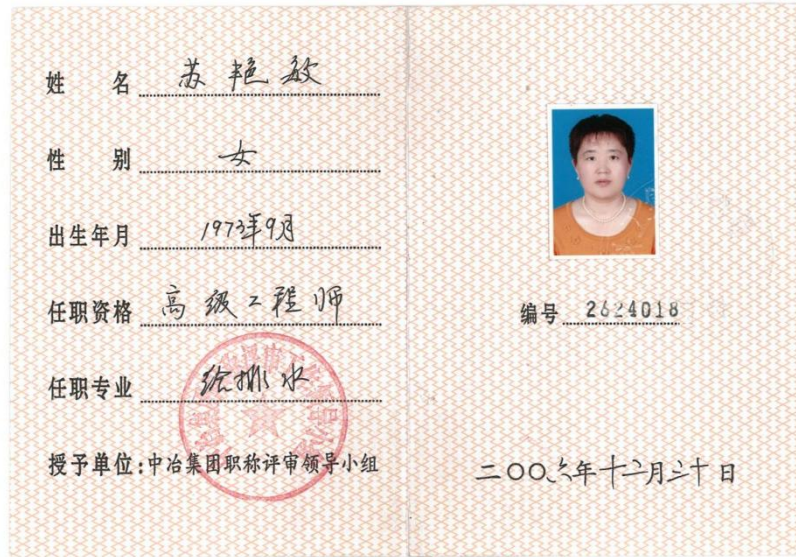 姓名 苏艳敏
性别 女
出生年月 1973年9月
任职资格 高级工程师
任职专业 给排水
授予单位:中冶集团职称评审领导小组
编号 2624018
二〇〇六年十二月三十日